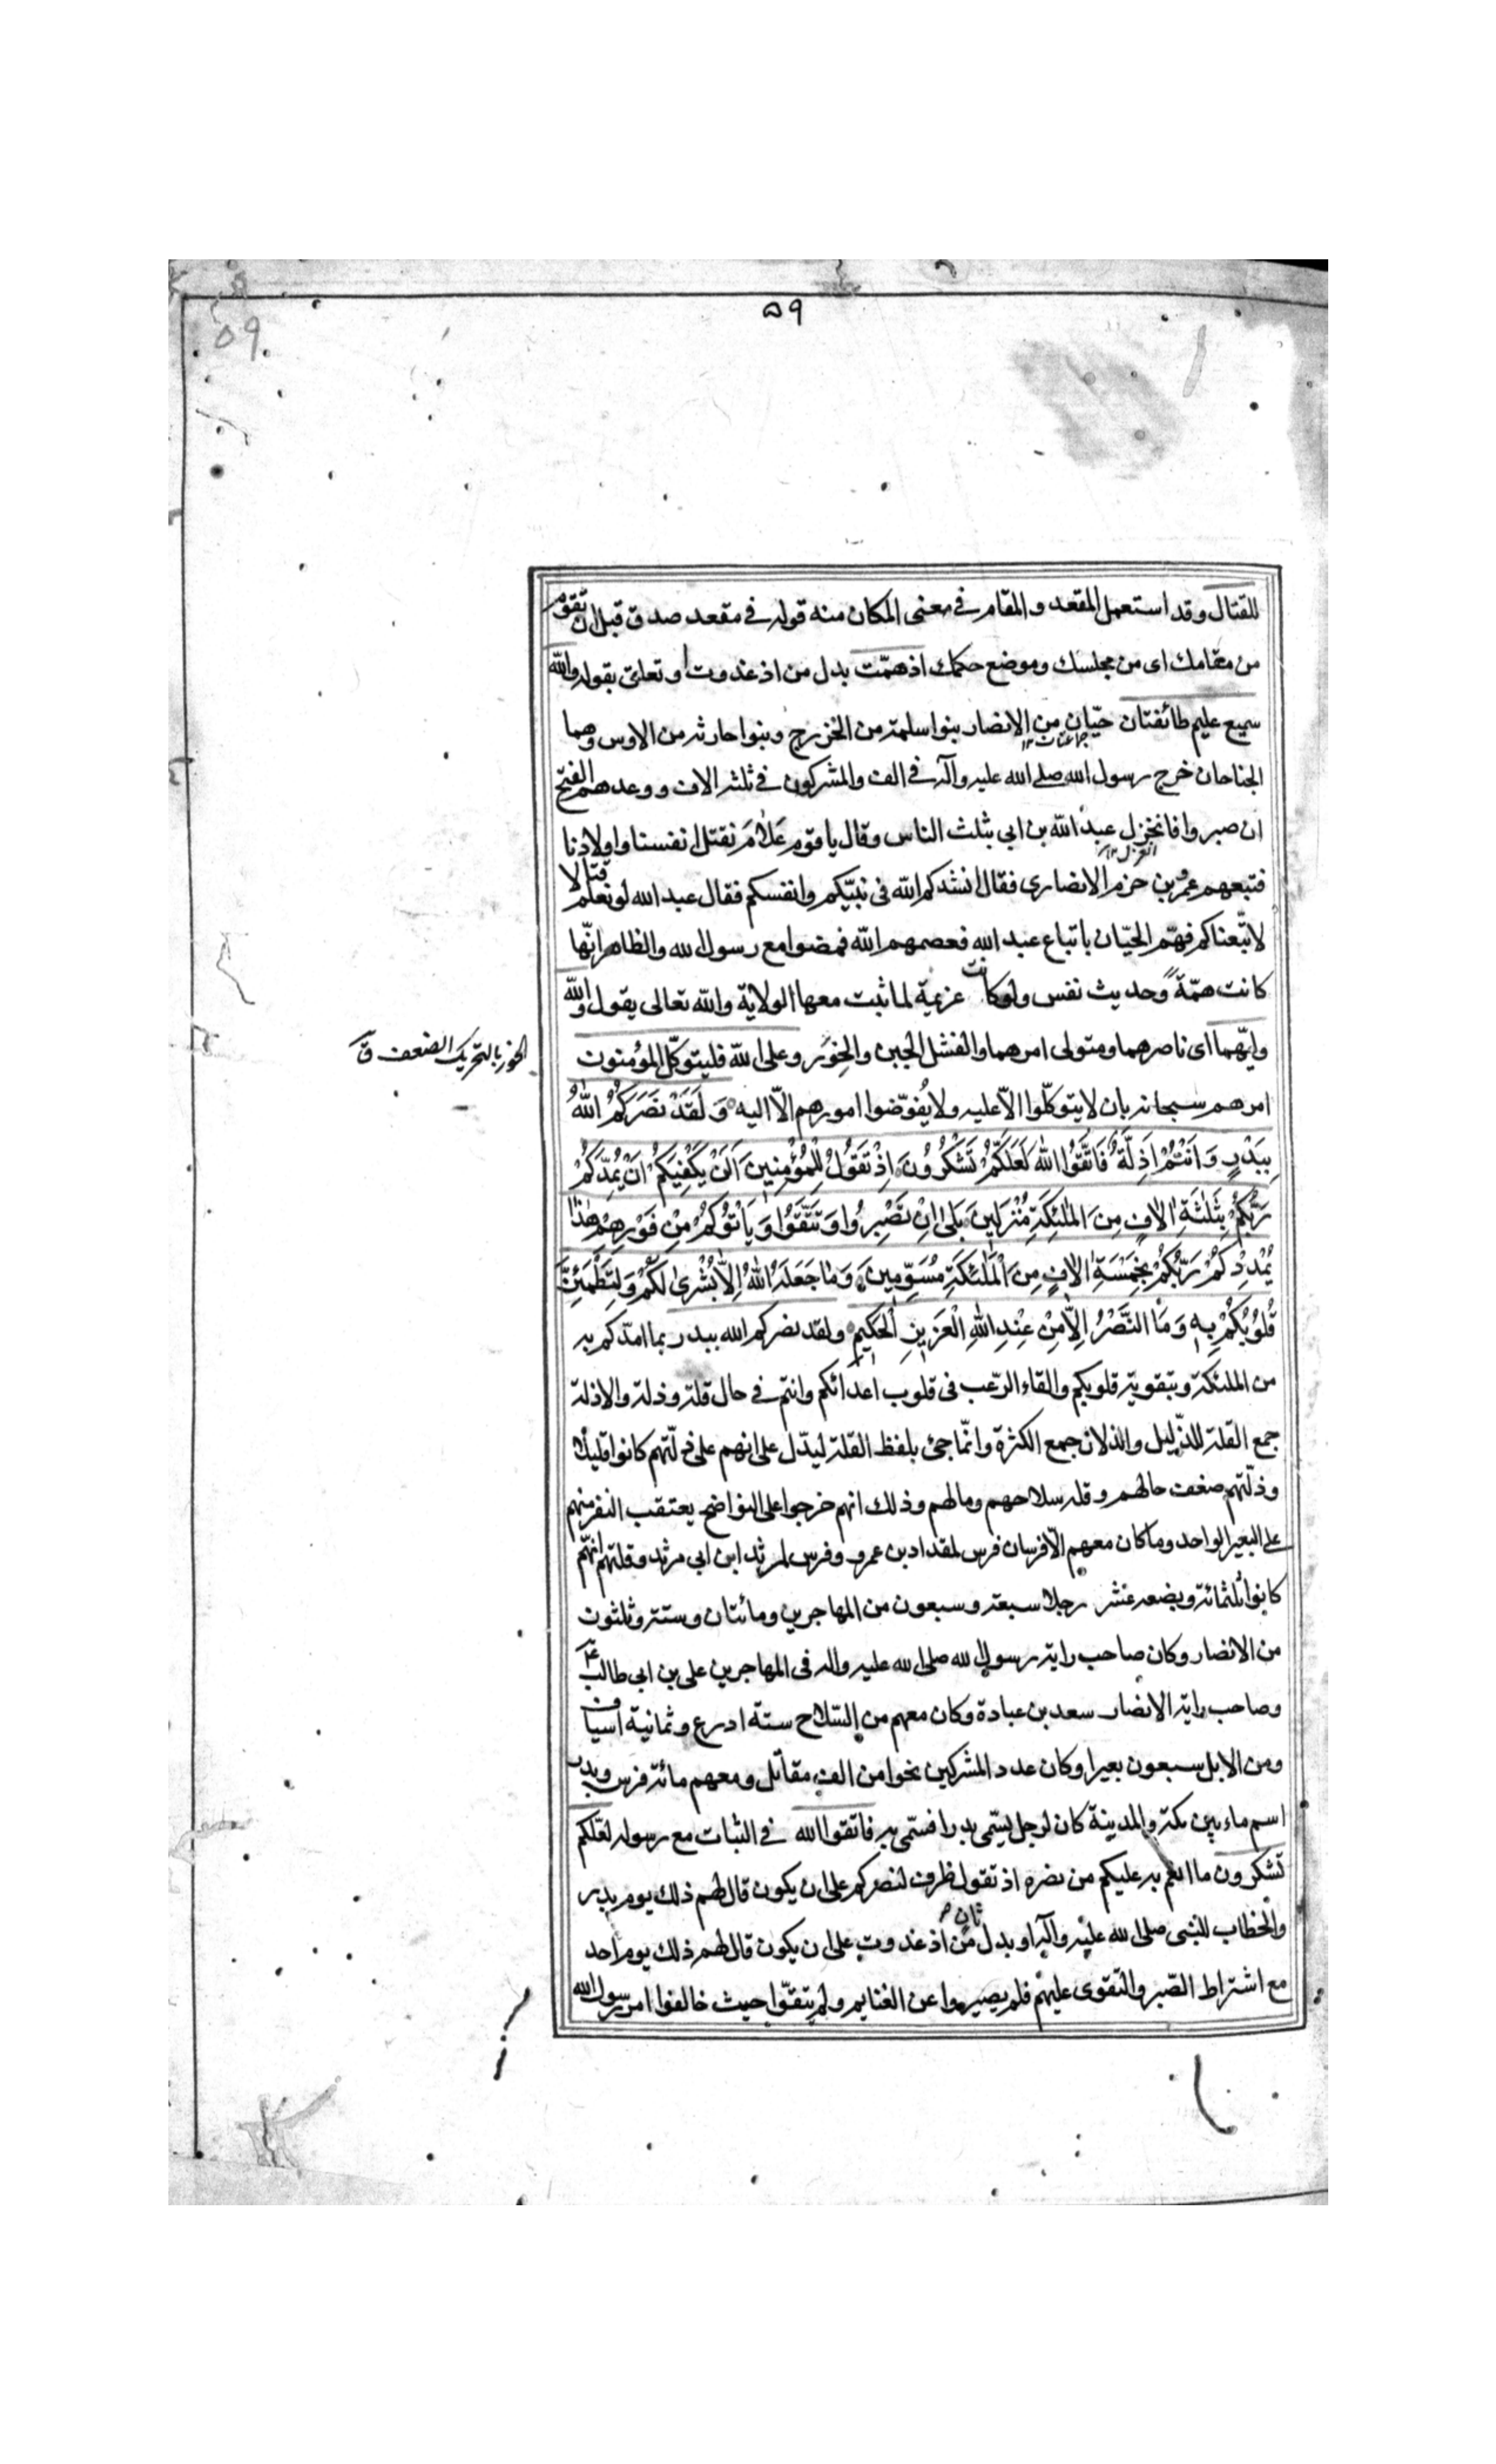 ٥٩
٥٩
للقتال وقد استعمل المقعد و المقام فى معنى المكان منه قوله فى مقعد صدق قبل ان تقوم
من مقامك اى من مجلسك وموضع حكمك اذ همّت بدل من اذ غدوت او تعلق بقوله والله
سميع عليم طائفتان حيّان من الانصار بنوا سلمة من الخزرج وبنوا حارثه من الاوس وهما
جماعتان ١٢
الجناحان خرج رسول الله صلى الله عليه وآله فى الف والمشركون فى ثلثه الاف ووعدهم الفتح
ان صبروا فانخزل عبد الله بن ابى بثلث الناس وقال يا قوم عَلَامَ نقتل انفسنا واولادنا
فتبعهم عمرو بن حزم الانصارى فقال انشدكم الله فى نبيّكم وانفسكم فقال عبد الله لو نعلم قتالا
لاتّبعناكم فهمّ الحيّان باتباع عبد الله فعصمهم الله فمضوا مع رسول الله والظاهر انّها
كانت همّة وحديث نفس ولو كانت عزيمة لما ثبت معها الولاية والله تعالى يقول والله
وليّهما اى ناصرهما ومتولى امرهما والفشل الجبن والخور وعلى الله فليتوكّل المؤمنون
الخور بالتحريك الضعف ق
امرهم سبحانه بان لا يتوكّلوا الّا عليه ولا يُفوّضوا امورهم الّا اليه وَلَقَدْ نَصَرَكُمُ اللهُ
بِبَدْرٍ وَاَنْتُمْ اَذِلَّةٌ فَاتَّقُوا اللهَ لَعَلَّكُمْ تَشْكُرُونَ اِذْ تَقُولُ لِلْمُؤْمِنِينَ اَلَنْ يَكْفِيَكُمْ اَنْ يُمِدَّكُمْ
رَبُّكُمْ بِثَلٰثَةِ اٰلافٍ مِنَ الْمَلٰئِكَةِ مُنْزَلِينَ بَلىٰ اِنْ تَصْبِرُوا وَتَتَّقُوا وَيَأْتُوكُمْ مِنْ فَوْرِهِمْ هٰذا
يُمْدِدْكُمْ رَبُّكُمْ بِخَمْسَةِ اٰلافٍ مِنَ الْمَلٰئِكَةِ مُسَوِّمِينَ وَمَا جَعَلَهُ اللهُ اِلَّا بُشْرىٰ لَكُمْ وَلِتَطْمَئِنَّ
قُلُوبُكُمْ بِهِ وَمَا النَّصْرُ اِلَّا مِنْ عِنْدِ اللهِ الْعَزِيزِ الْحَكِيمِ ولقد نصركم الله ببدر بما امدّكم به
من الملئكة وبتقوية قلوبكم والقاء الرّعب فى قلوب اعدائكم وانتم فى حال قلة وذلة والاذلة
جمع القلة للذّليل والذلان جمع الكثرة وانّما جئ بلفظ القلة ليدّل على انهم على ذلّتهم كانوا قليلا
وذلّتهم ضعف حالهم وقلة سلاحهم ومالهم وذلك انهم خرجوا على النواضح يعتقب النفر منهم
على البعير الواحد وما كان معهم الّا فرسان فرس لمقداد بن عمرو وفرس لمرثد ابن ابى مرثد وقلتهم انّهم
كانوا ثلثمائة وبضعه عشر رجلا سبعة وسبعون من المهاجرين ومائتان وستة وثلثون
من الانصار وكان صاحب راية رسول الله صلى الله عليه واله فى المهاجرين على بن ابى طالب ع
وصاحب راية الانصار سعد بن عبادة وكان معهم من السّلاح ستة ادرع وثمانية اسياف
ومن الابل سبعون بعيرا وكان عدد المشركين نحوا من الف مقاتل ومعهم مائة فرس وبدر
اسم ماء بين مكة والمدينة كان لرجل يسّمى بدرا فسّمى به فاتقوا الله فى الثبات مع رسوله لعّلكم
تشكرون ما انعم به عليكم من نصره اذ تقول ظرف لنصركم على ان يكون قال لهم ذلك يوم بدر
والخطاب للنبى صلى الله عليه وآله او بدل ثان من اذ غدوت على ان يكون قال لهم ذلك يوم احد
مع اشتراط الصّبر والتقوى عليهم فلم يصبروا عن الغنايم ولم يتقوا حيث خالفوا امر رسول الله